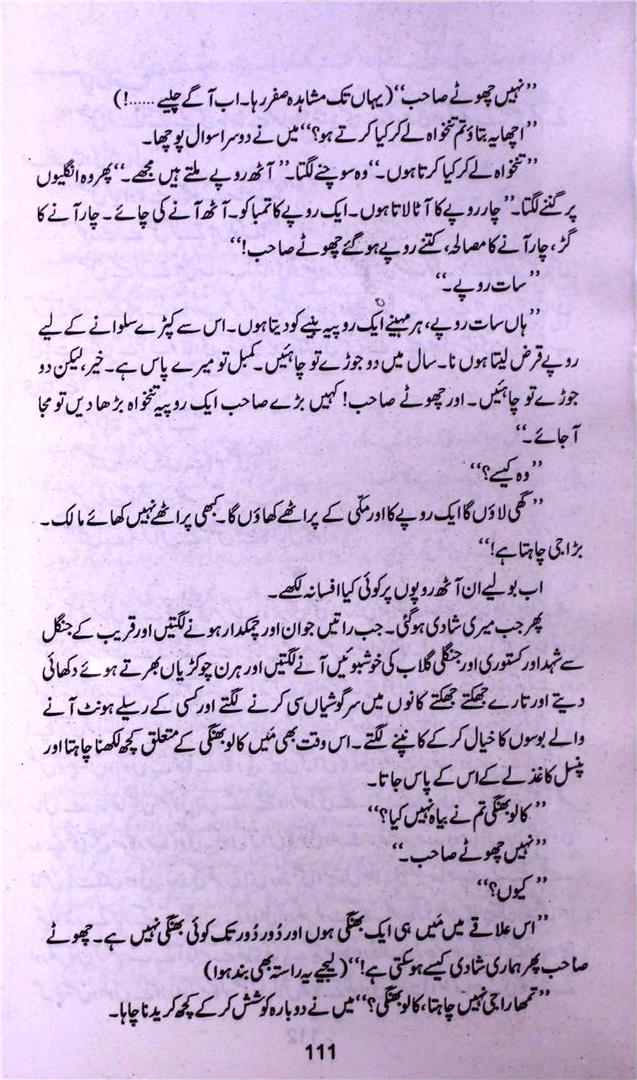 ’’نہیں چھوٹے صاحب‘‘ (یہاں تک مشاہدہ صفر رہا۔ اب آگے چلیے ......!)
’’اچھا یہ بتاؤ تم تنخواہ لے کر کیا کرتے ہو؟‘‘ میں نے دوسرا سوال پوچھا۔
’’تنخواہ لے کر کیا کرتا ہوں۔‘‘ وہ سوچنے لگتا۔ ’’آٹھ روپے ملتے ہیں مجھے۔‘‘ پھر وہ انگلیوں
پر گننے لگتا۔ ’’چار روپے کا آٹا لاتا ہوں۔ ایک روپے کا تمباکو۔ آٹھ آنے کی چائے۔ چار آنے کا
گڑ، چار آنے کا مصالحہ، کتنے روپے ہو گئے چھوٹے صاحب!‘‘
’’سات روپے۔‘‘
’’ہاں سات روپے، ہر مہینے ایک روپیہ بنیے کو دیتا ہوں۔ اس سے کپڑے سلوانے کے لیے
روپے قرض لیتا ہوں نا۔ سال میں دو جوڑے تو چاہئیں۔ کمبل تو میرے پاس ہے۔ خیر، لیکن دو
جوڑے تو چاہئیں۔ اور چھوٹے صاحب! کہیں بڑے صاحب ایک روپیہ تنخواہ بڑھا دیں تو مجا
آ جائے۔‘‘
’’وہ کیسے؟‘‘
’’گھی لاؤں گا ایک روپے کا اور مکّی کے پراٹھے کھاؤں گا۔ کبھی پراٹھے نہیں کھائے مالک۔
بڑا جی چاہتا ہے!‘‘
اب بولیے ان آٹھ روپوں پر کوئی کیا افسانہ لکھے۔
پھر جب میری شادی ہو گئی۔ جب راتیں جوان اور چمکدار ہونے لگتیں اور قریب کے جنگل
سے شہد اور کستوری اور جنگلی گلاب کی خوشبوئیں آنے لگتیں اور ہرن چوکڑیاں بھرتے ہوئے دکھائی
دیتے اور تارے جھکتے جھکتے کانوں میں سرگوشیاں سی کرنے لگتے اور کسی کے رسیلے ہونٹ آنے
والے بوسوں کا خیال کر کے کانپنے لگتے۔ اس وقت بھی مَیں کالو بھنگی کے متعلق کچھ لکھنا چاہتا اور
پنسل کاغذ لے کے اس کے پاس جاتا۔
’’کالو بھنگی تم نے بیاہ نہیں کیا؟‘‘
’’نہیں چھوٹے صاحب۔‘‘
’’کیوں؟‘‘
’’اس علاقے میں مَیں ہی ایک بھنگی ہوں اور دُور دُور تک کوئی بھنگی نہیں ہے۔ چھوٹے
صاحب پھر ہماری شادی کیسے ہو سکتی ہے!‘‘ (لیجیے یہ راستہ بھی بند ہوا)
’’تمھارا جی نہیں چاہتا، کالو بھنگی؟‘‘ میں نے دوبارہ کوشش کر کے کچھ کریدنا چاہا۔
111